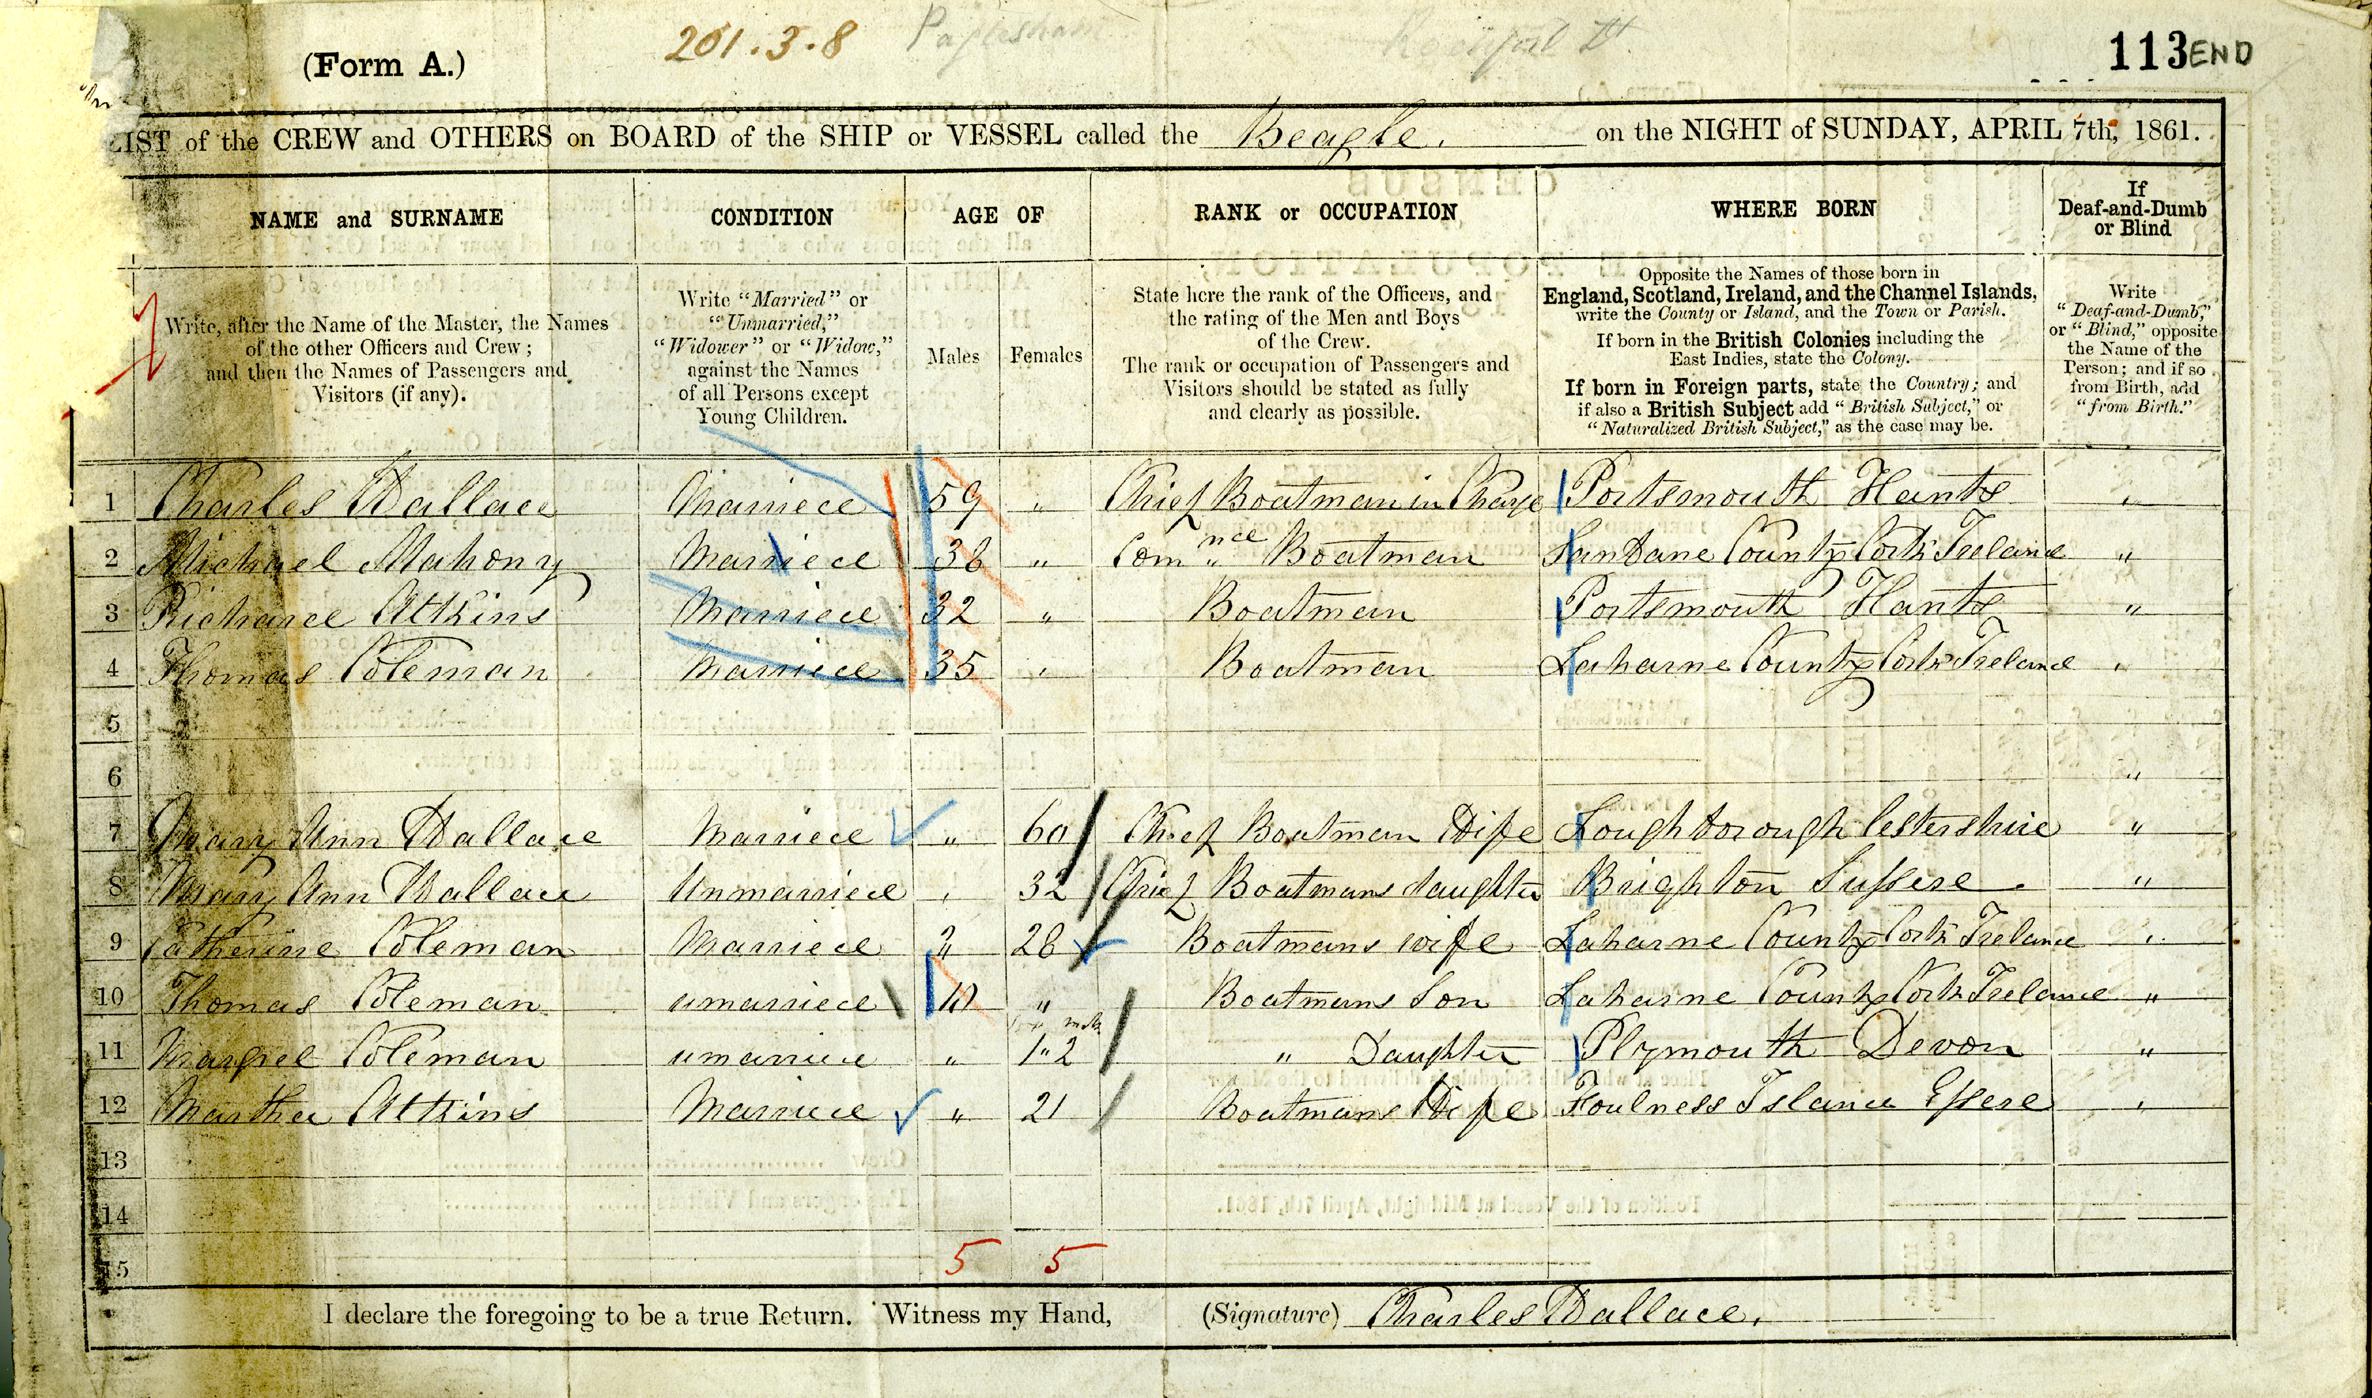 (Form A.) 201.3.8 Paglesham Rochford Dt. 113 END
LIST of the CREW and OTHERS on BOARD of the SHIP or VESSEL called the Beagle. on the NIGHT of SUNDAY, APRIL 7th, 1861.
NAME and SURNAME CONDITION AGE OF RANK or OCCUPATION WHERE BORN If Deaf-and-Dumb or Blind
Write, after the Name of the Master, the Names
of the other Officers and Crew;
and then the Names of Passengers and
Visitors (if any).
Write "Married" or
"Unmarried,"
"Widower" or "Widow,"
against the Names
of all Persons except
Young Children.
Males Females
State here the rank of the Officers, and
the rating of the Men and Boys
of the Crew.
The rank or occupation of Passengers and
Visitors should be stated as fully
and clearly as possible.
Opposite the Names of those born in
England, Scotland, Ireland, and the Channel Islands,
write the County or Island, and the Town or Parish.
If born in the British Colonies including the
East Indies, state the Colony.
If born in Foreign parts, state the Country; and
if also a British Subject add "British Subject," or
"Naturalized British Subject," as the case may be.
Write
"Deaf-and-Dumb,"
or "Blind," opposite
the Name of the
Person; and if so
from Birth, add
"from Birth."
1 Charles Wallace Married 59 " Chief Boatman in Charge Portsmouth Hants "
2 Michael Mahony Married 36 " Com nce Boatman County Cork Ireland "
3 Richard Atkins Married 32 " Boatman Portsmouth Hants "
4 Thomas Coleman Married 35 " Boatman Laharne County Cork Ireland "
5
6 "
7 Mary Ann Wallace Married " 60 Chief Boatman Wife Loughborough lestershire "
8 Mary Ann Wallace Unmarried " 32 Chief Boatmans daughter Brighton Sussex. "
9 Catherine Coleman Married " 28 Boatmans wife Laharne County Cork Ireland "
10 Thomas Coleman umarried 10 " Boatmans Son Laharne County Cork Ireland "
11 Margret Coleman umarried " 1"2 " Daughter Plymouth Devon "
12 Martha Atkins Married " 21 Boatmans Wife Foulness Island Essex "
13
14
15 5 5
I declare the foregoing to be a true Return. Witness my Hand, (Signature) Charles Wallace.